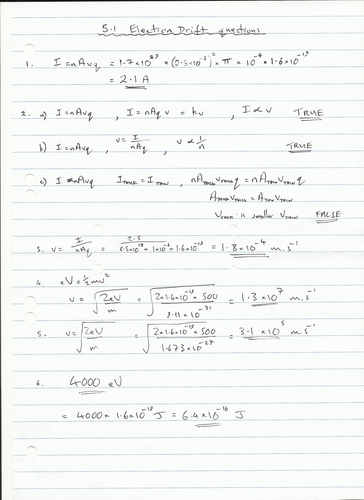 5.1 Electron Drift questions
1. I=nAvq = 1.7×10²⁹ × (0.5×10⁻³)² × π × 10⁻⁴ × 1.6×10⁻¹⁹
= 2.1 A
2. a) I=nAvq , I=nAq v = kv , I ∝ v TRUE
b) I=nAvq , v = I/nAq , v ∝ 1/n TRUE
c) I=nAvq I_THICK = I_THIN , nA_THICK v_THICK q = nA_THIN v_THIN q
A_THICK v_THICK = A_THIN v_THIN
v_THICK is smaller v_THIN FALSE
3. v = I/nAq = 2.5/8.5×10²⁸ × 1×10⁻⁶ × 1.6×10⁻¹⁹ = 1.8×10⁻⁴ m.s⁻¹
4. eV=½mv²
v = √(2eV/m) = √(2×1.6×10⁻¹⁹ × 500/9.11×10⁻³¹) = 1.3×10⁷ m.s⁻¹
5. v=√(2eV/m) = √(2×1.6×10⁻¹⁹ × 500/1.673×10⁻²⁷) = 3.1×10⁵ m.s⁻¹
6. 4000 eV
= 4000 × 1.6×10⁻¹⁹ J = 6.4×10⁻¹⁶ J